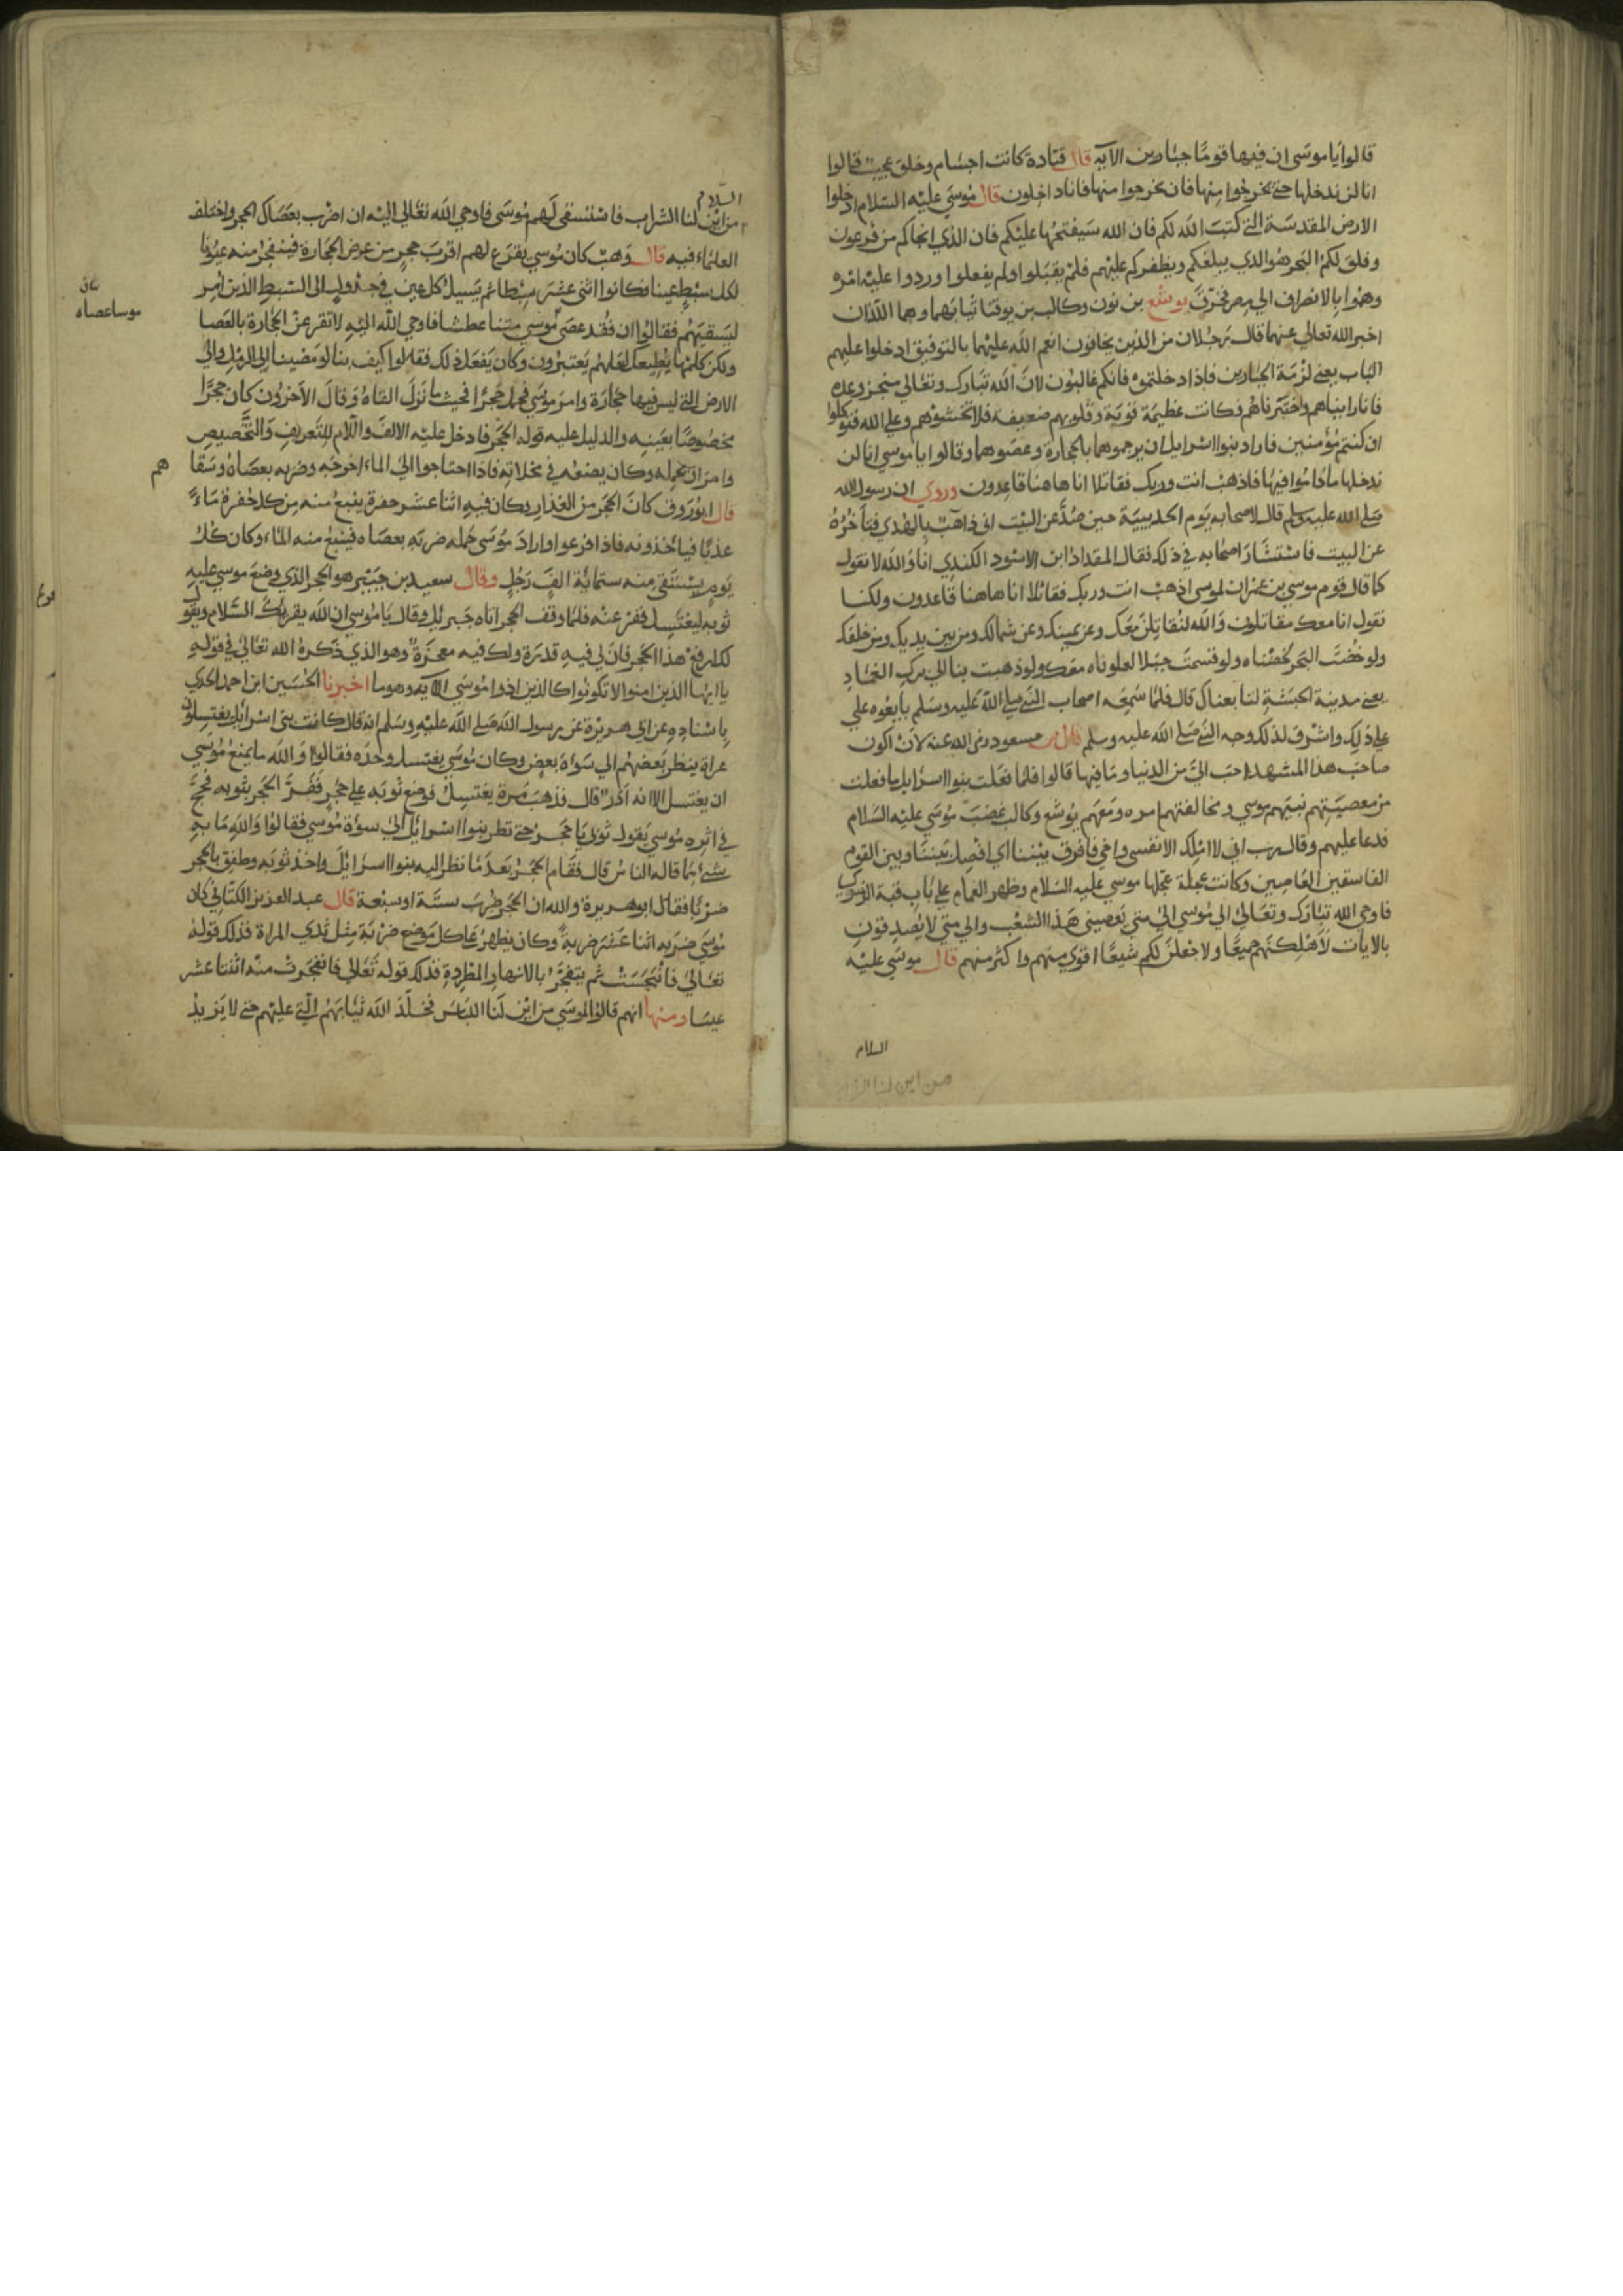 قالوا يا موسى ان فيها قومًا جبارين الآية قال قتادة كانت اجسام وخلق عجيب قالوا
انا لن ندخلها حتي يخرجوا منها فان يخرجوا منها فانا داخلون قال موسي عليه السلام ادخلوا
الارض المقدسة التي كتب الله لكم فان الله سيفتحها عليكم فان الذي انجاكم من فرعون
وفلق لكم البحر هو الذي يبلغكم ويظفركم عليهم فلم يقبلوا ولم يفعلوا وردوا عليه امره
وهموا بالانصراف الي مصر فخرق يوشع بن نون وكالب بن يوقنا ثيابهما وهما اللذان
اخبر الله تعالي عنهما قال رجلان من الذين يخافون انعم الله عليهما بالتوفيق ادخلوا عليهم
الباب يعني لزمة الجبارين فاذا دخلتموه فانكم غالبون لان الله تبارك وتعالي منجز وعده
فانا رايناهم واختبرناهم فكانت عظيمة قوية وقلوبهم ضعيفة فلا تخشوهم وعلي الله فتوكلوا
ان كنتم مؤمنين فاراد بنوا اسرايل ان يرجموهما بالحجارة وعصوهما وقالوا يا موسي انا لن
ندخلها ما داموا فيها فاذهب انت وربك فقاتلا انا هاهنا قاعدون وروي ان رسول الله
صلي الله عليه وسلم قال لاصحابه يوم الحديبية حين صد عن البيت اني ذاهب بالهدي فناحره
عن البيت فاستشار اصحابه في ذلك فقال المقداد ابن الاسود الكندي انا والله لا نقول
كما قال قوم موسي بن عمران لموسي اذهب انت وربك فقاتلا انا هاهنا قاعدون ولكنا
نقول انا معك مقاتلون والله لنقاتلن معك وعن يمينك وعن شمالك ومن بين يديك ومن خلفك
ولو خضت البحر لخضناه ولو قسمت جبلا لعلوناه معك ولو ذهبت بنا الي برك الغماد
يعني مدينة الحبشة لتابعناك قال فلما سمعه اصحاب النبي صلي الله عليه وسلم بايعوه علي
علي ذلك واشرق لذلك وجه النبي صلي الله عليه وسلم قال بن مسعود رضي الله عنه لان اكون
صاحب هذا المشهد احب الي من الدنيا وما فيها قالوا فلما فعلت بنوا اسرايل ما فعلت
من معصيتهم نبيهم موسي ومخالفتهم امره ومعهم يوشع وكالب غضب موسي عليه السلام
فدعا عليهم وقال رب اني لا املك الا نفسي واخي فافرق بيننا اي افصل بيننا وبين القوم
الفاسقين العاصين وكانت عجلة عجلها موسي عليه السلام وظهر الغمام علي باب قبة الزمر
فاوحي الله تبارك وتعالي الي موسي الي متي يعصيني هذا الشعب والي متي لا يصدقون
بالايات لاهلكنهم جميعًا ولاجعلن لكم شيعًا اقوي منهم واكثر منهم قال موسي عليه
السلام
من اين لنا الشراب
السلام
من اين لنا الشراب فاستسقي لهم موسي فاوحي الله تعالي اليه ان اضرب بعصاك الحجر واختلف
العلماء فيه قال وهب كان موسي يقرع لهم اقرب حجر من عرض الحجارة فينفجر منه عيونا
لكل سبط عينا وكانوا اثني عشر سبطا ثم يسيل كل عين في جدول الي السبط الذين امر
ليسقيهم فقالوا ان فقد عصي موسي متنا عطشا فاوحي الله اليه لا تقرعن الحجارة بالعصا
ولكن كلمها تطيعك لعلهم يعتبرون وكان يفعل ذلك فقالوا كيف بنا لو مضينا الي الرمل والي
الارض التي ليس فيها حجارة وامر موسي فحمل حجرًا فحيث ما نزل القاه وقال الاخرون كان حجرًا
مخصوصًا بعينه والدليل عليه قوله الحجر فادخل عليه الالف واللام للتعريف والتخصيص
وامر ان يحمله وكان يضعه في مخلاته فاذا احتاجوا الي الماء اخرجه وضربه بعصاه وسقا
هم
قال ابو روف كان الحجر من الغذار وكان فيه اثنا عشر حفرة ينبع منه من كل حفرة ماءً
عذبًا فياخذونه فاذا فرغوا واراد موسي حمله ضربه بعصاه فينبع منه الماء وكان كل
يوم يستقي منه ستماية الف رجل وقال سعيد بن جبير هو الحجر الذي وضع موسي عليه
ثوبه ليغتسل ففر عنه فلما وقف الحجر اتاه جبريل وقال يا موسي ان الله يقريك السلام ويقول
لك ارفع هذا الحجر فان لي فيه قدرة ولك فيه معجزة وهو الذي ذكره الله تعالي في قوله
يا ايها الذين امنوا لا تكونوا كالذين اذوا موسي الاية وهو ما اخبرنا الحسين ابن احمد الحدي
باسناده عن ابي هريرة عن رسول الله صلي الله عليه وسلم انه قال كانت بني اسرايل يغتسلون
عراة ينظر بعضهم الي سواة بعض وكان موسي يغتسل وحده فقالوا والله ما يمنع موسي
ان يغتسل الا انه آدر قال فذهب مرة يغتسل فوضع ثوبه علي حجر ففر الحجر بثوبه فجمح
في اثره موسي يقول ثوبي يا حجر حتي نظر بنوا اسرايل الي سوءة موسي فقالوا والله ما به
شيء مما قاله الناس قال فقام الحجر بعد ما نظر اليه بنوا اسرايل واخذ ثوبه وطفق بالحجر
ضربًا فقال ابو هريرة والله ان الحجر ضرب ستة او سبعة قال عبد العزيز الكتاني كان
موسي ضربه اثنا عشر ضربة وكان يظهر علي كل موضع ضربة مثل ثدي المراة فذلك قوله
تعالي فانبجست ثم يتفجر بالانهار المطردة فذلك قوله تعالي فانفجرت منه اثنتا عشر
عينا ومنها انهم قالوا لموسي من اين لنا اللباس فخلد الله ثيابهم التي عليهم حتي لا يزيد
موسا عصاه